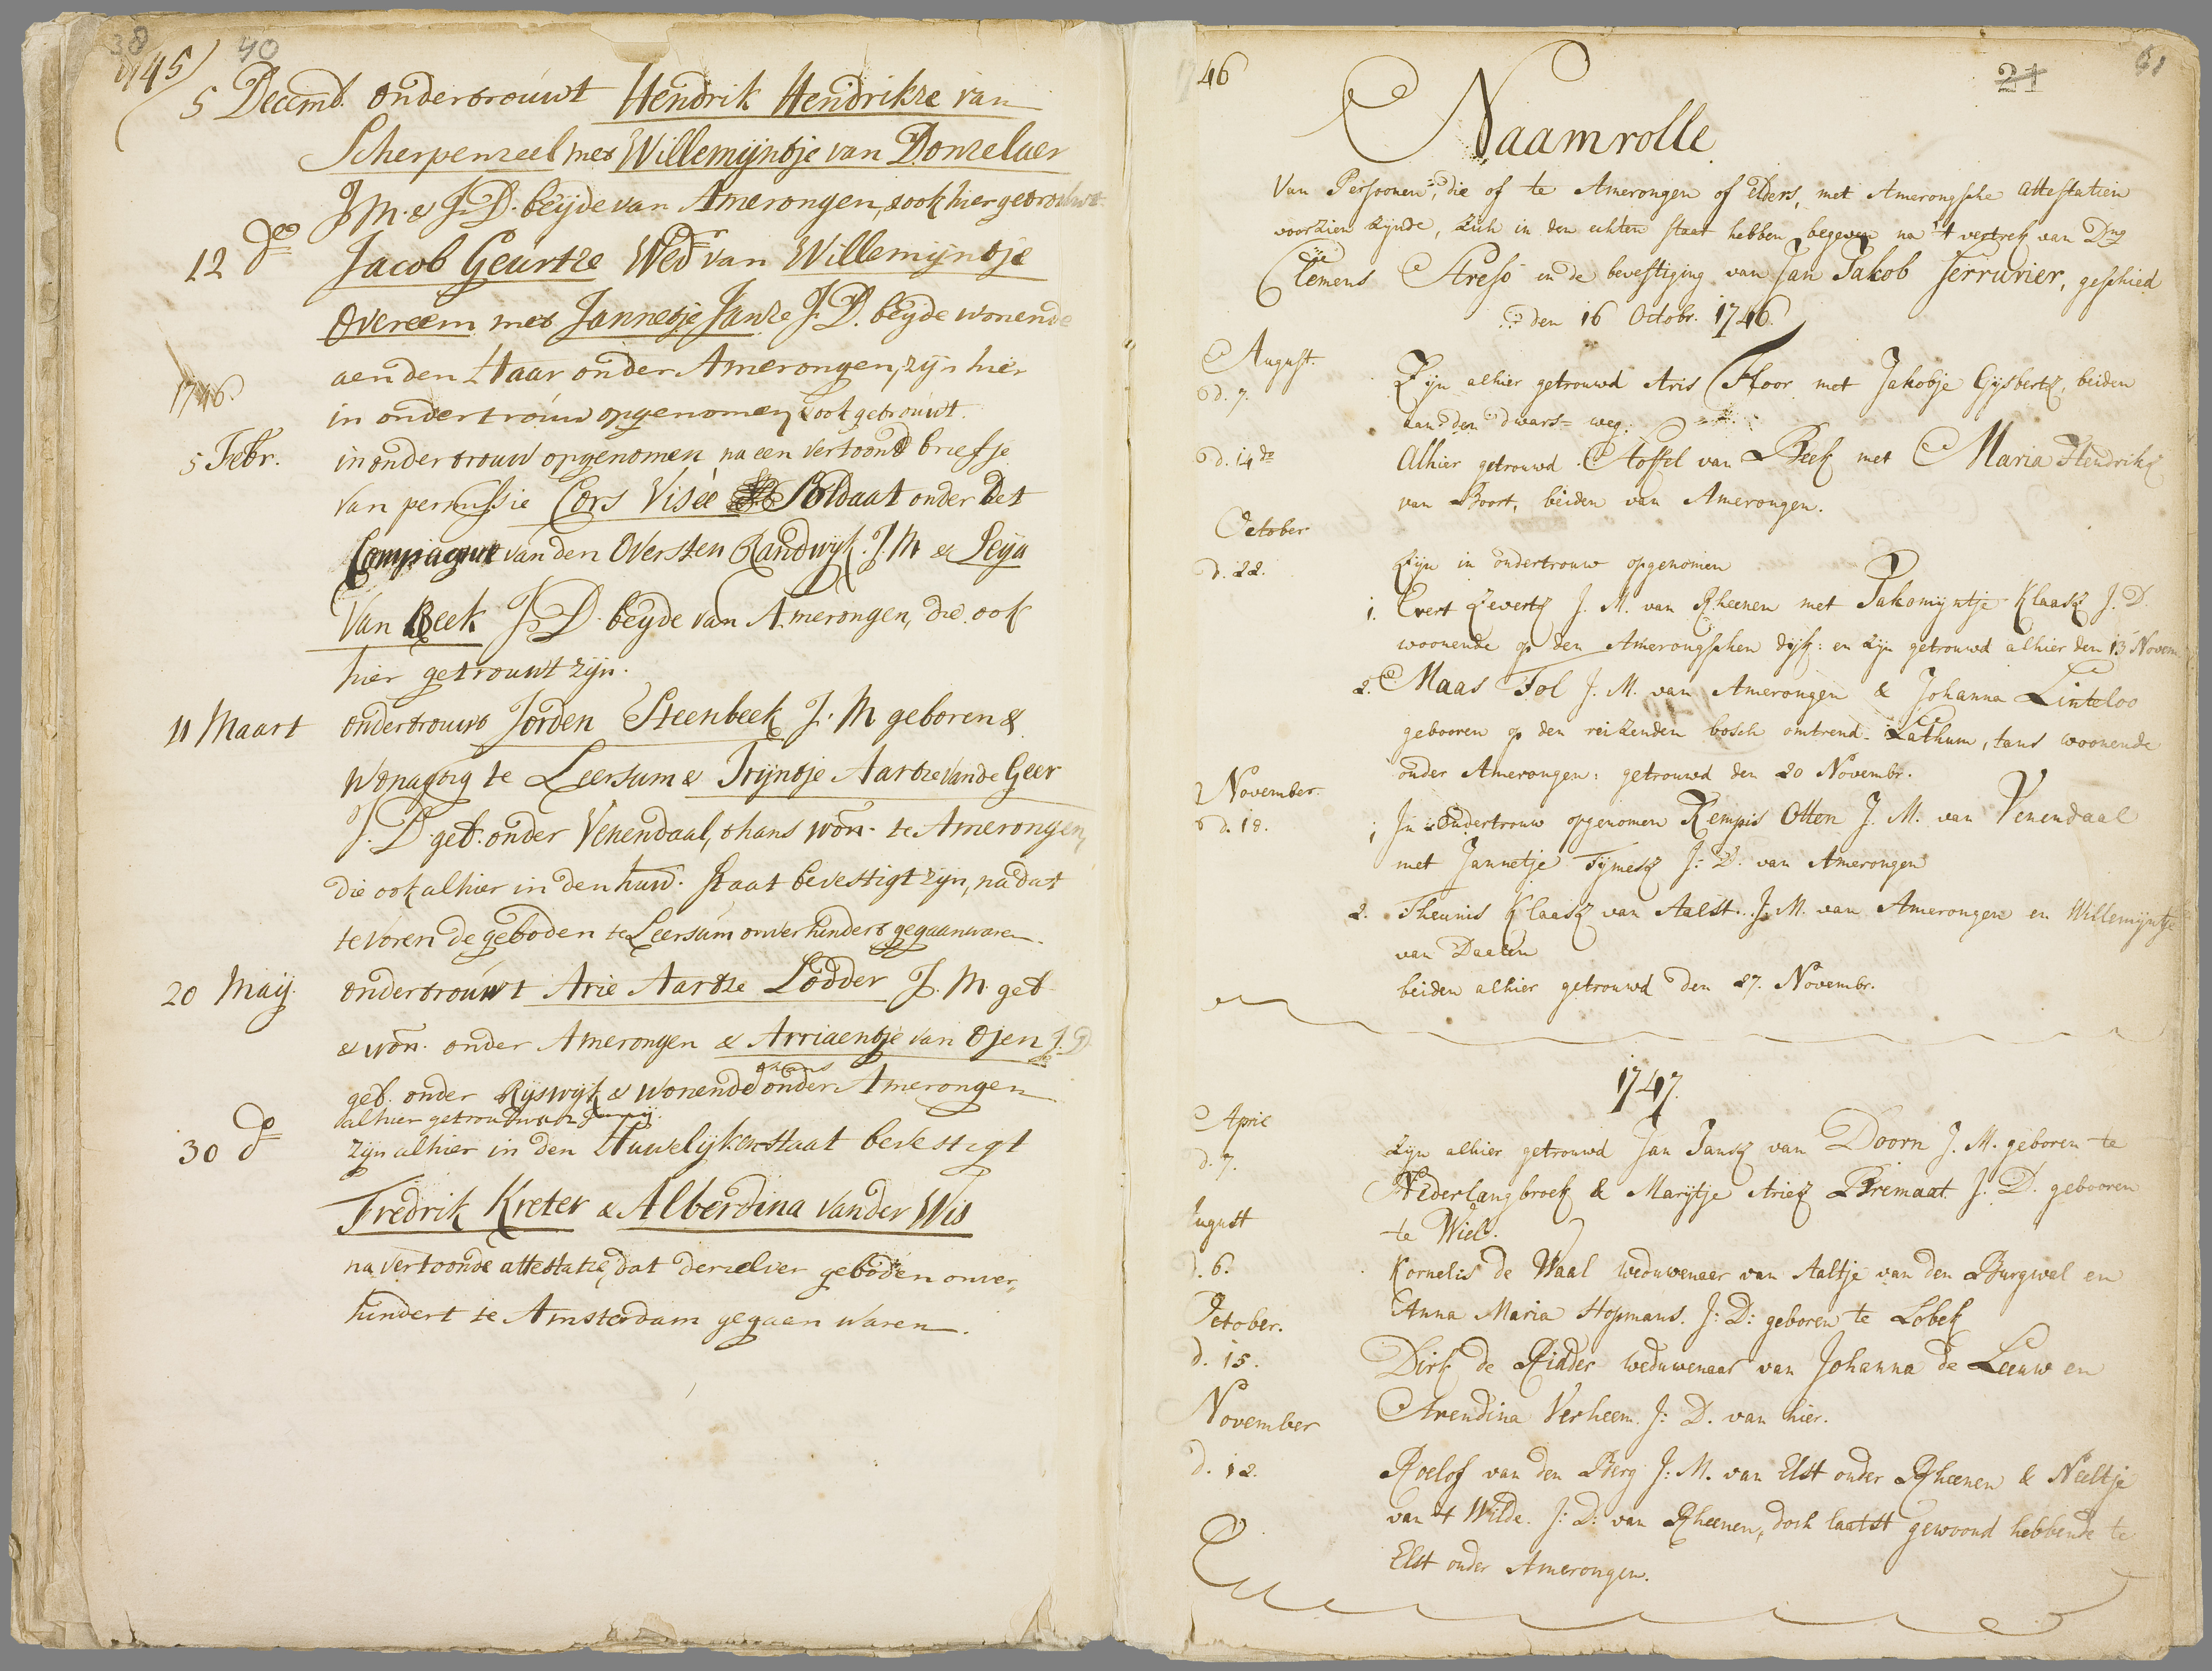 38
40
1745
5 Decemb. ondertrouwt Hendrik Hendrikze van
Scherpenzeel met Willemijntje van Donzelaer
J M. & J. D. beijde van Amerongen, & ook hier getrouwt
12 do Jacob Geurtze Wedr van Willemijntje
Overeem met Jannetje Janze J. D. beijde wonende
aen den Haar onder Amerongen, zijn hier
1746
in ondertrouw opgenomen, & ook getrouwt.
5 Febr. in ondertrouw opgenomen na een vertoond briefje
van permissie Cors Viseé Soldaat onder Det
Compagnie van den Oversten Randwyk. J. M & Peija
Van Beek J. D. beyde van Amerongen, die ook
hier getrouwt zijn.
11 Maart ondertrouwt Jorden Steenbeek J. M geboren &
te Leersum & Trijntje Aartze van de Geer
J. D. geb. onder Venendaal, thans won. te Amerongen,
die ook alhier in den huw. staat bevestigt zijn, na dat
te voren de geboden te Leersum onverhindert gegaan waren.
20 Maij. ondertrouwt Arie Aartze Lodder J. M. geb
& won. onder Amerongen & Arriaentje van Ojen J. D.
thans
geb. onder Rijswijk & wonende onder Amerongen
alhier getrouwt
30 do zijn alhier in den Huwelijken staat bevestigt
Fredrik Kreter & Alberdina vander Wis
na vertoonde attestatie, dat derzelver geboden onver,,
hindert te Amsterdam gegaen waren.
1746
21
61
Naamrolle
Van Persoonen, die of te Amerongen of elders, met Amerongsche attestatien
voorzien zijnde, zich in den echten staat hebben begeven na 't vertrek van Dns
Clemens Streso en de bevestiging van Jan Jakob Serrurier, geschied
den 16 Octobr. 1746.
August.
d. 7. Zijn alhier getrouwd Aris Floor met Jakobje Gijsbertz, beiden
aan den dwars= weg.
d. 14de Alhier getrouwd Stoffel van Beek met Maria Hendrikz
van Boort, beiden van Amerongen.
October
d. 22. Zijn in ondertrouw opgenomen
1. Evert Zevertz J. M. van Rheenen met Jakomijntje Klaasz J. D.
woonende op den Amerongschen dijk: en zijn getrouwd alhier den 13 Novem.
2. Maas Tol J. M. van Amerongen & Johanna Linteloo
gebooren op den reizenden bosch omtrend Lathum, tans woonende
onder Amerongen: getrouwd den 20 Novembr.
November.
d. 18. 1 In ondertrouw opgenomen Rempis Otten J. M. van Venendaal
met Jannetje Tijmesz J: D. van Amerongen
2. Theunis Klaasz van Aalst. J. M. van Amerongen en Willemijntje
van Daalen
beiden alhier getrouwd den 27. Novembr.
1747.
April
d. 7. Zijn alhier getrouwd Jan Jansz van Doorn J. M. geboren te
Nederlangbroek & Marijtje Ariez Bremaat J. D. gebooren
te Wiel.
August
d. 6. Kornelis de Waal weduwenaer van Aaltje van den Burgwal en
Anna Maria Hopmans. J: D: geboren te Lobek
October.
d. 15. Dirk de Ridder weduwenaar van Johanna de Leeuw en
Arendina Verheem. J: D. van hier.
November
d. 12. Roelof van den Berg J: M. van Elst onder Rheenen & Neeltje
van 't Wilde. J: D: van Rheenen, doch laatst gewoond hebbende te
Elst onder Amerongen.